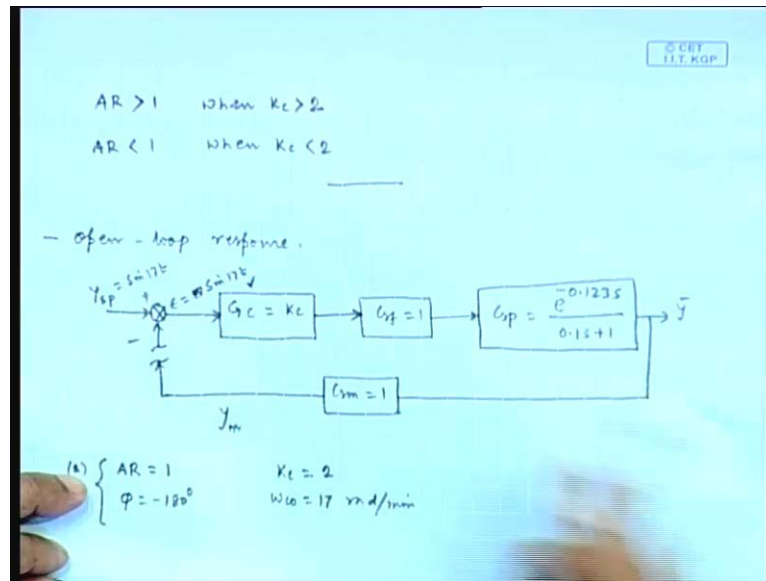 © CET
I.I.T. KGP
AR > 1 when Kc > 2
AR < 1 when Kc < 2
- open-loop response.
ysp = sin 17t
+
ε = sin 17t
Gc = Kc
Gf = 1
Gp = e^-0.123s / 0.1s+1
ȳ
-
Gm = 1
ym
(a) { AR = 1 Kc = 2
φ = -180° ωco = 17 rad/min